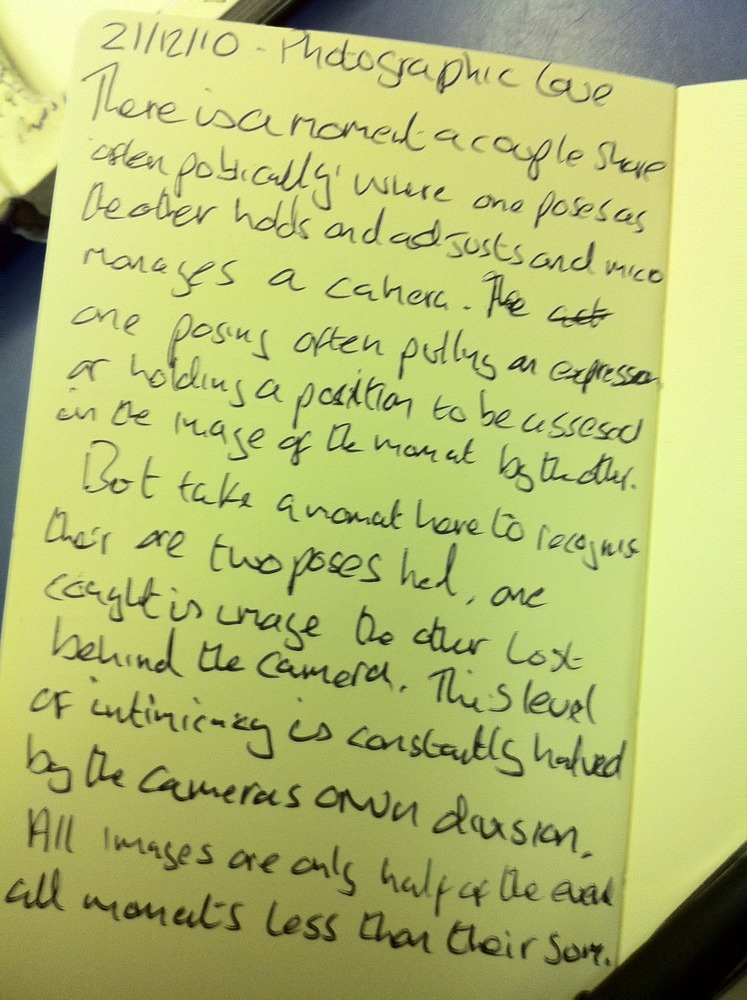 21/12/10 - Photographic Love
There is a moment a couple share
often publically' where one poses as
the other holds and adjusts and mico
manages a camera. The act
one posing often pulling an expression
or holding a position to be assesed
in the image of the moment by the other.
But take a moment here to recognise
their are two poses held, one
caught is image the other lost
behind the camera. This level
of intimicacy is constantly halved
by the cameras own division.
All images are only half of the event
all moments less than their sum.